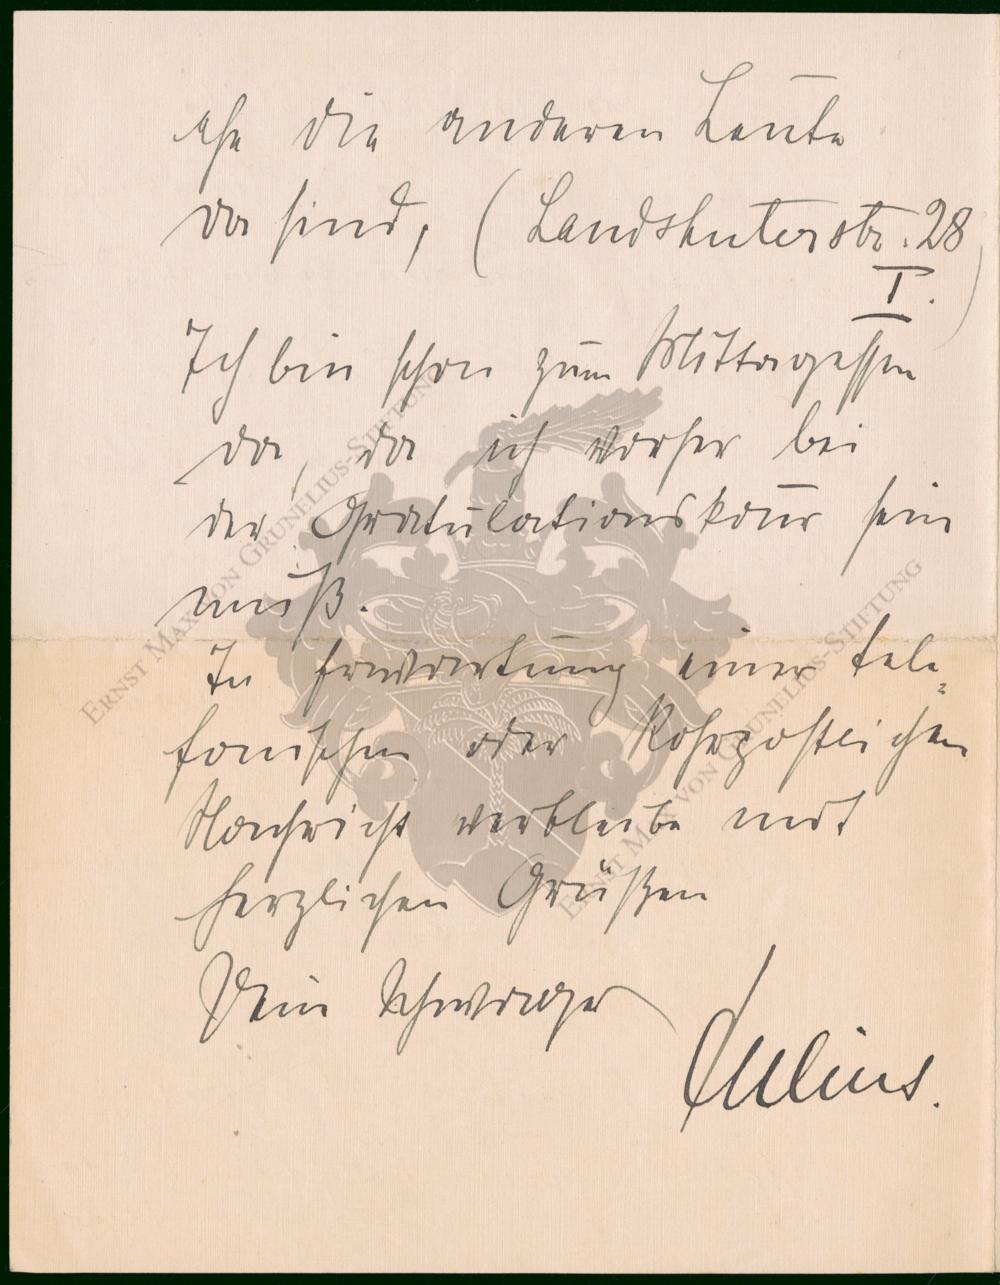 ehe die anderen Leute
da sind, (Landshuterstr. 28
I.)
Ich bin schon zum Mittagessen
da, da ich vorher bei
der Gratulationskour sein
muß.
In Erwartung einer tele=
fonischen oder Rohrpostlichen
Nachricht verbleibe mit
herzlichen Grüßen
Dein Schwager
Julius.
Ernst Max von Grunelius-Stiftung
Ernst Max von Grunelius-Stiftung